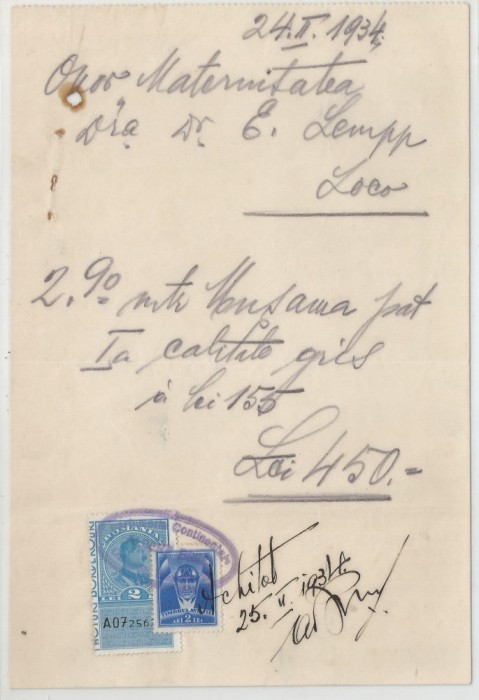 24.II.1934.
Onor Maternitatea
Dra Dr. E. Lempp
Loco
2.90 mtr Musama pat
Ia calitate gris
à lei 155
Lei 450.=
Continental
ROMANIA
LEI 2
A07256
2 LEI
Achitat
25.II.1934.